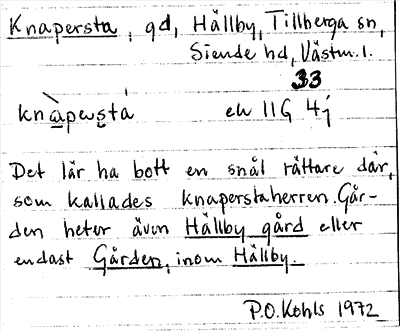 Knapersta, gd, Hällby, Tillberga sn,
Siende hd, Västm. l.
33
knàpeṣstá ek 11G 4j
Det lär ha bott en snål rättare där,
som kallades knaperstaherren. Går-
den heter även Hällby gård eller
endast Gården, inom Hällby.
P.O. Kohls 1972